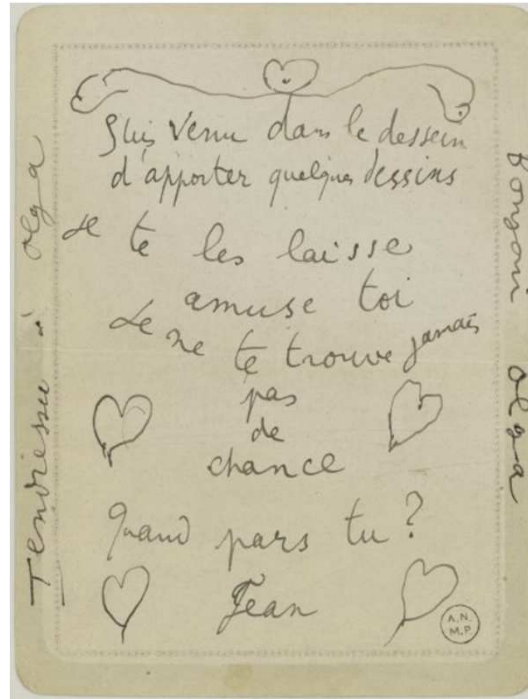 Suis venu dans le dessein
d'apporter quelques dessins
Je te les laisse
amuse toi
Je ne te trouve jamais
pas
de
chance
Quand pars tu ?
Jean
Tendresses à Olga
Bonjour Olga
A.N.
M.P.